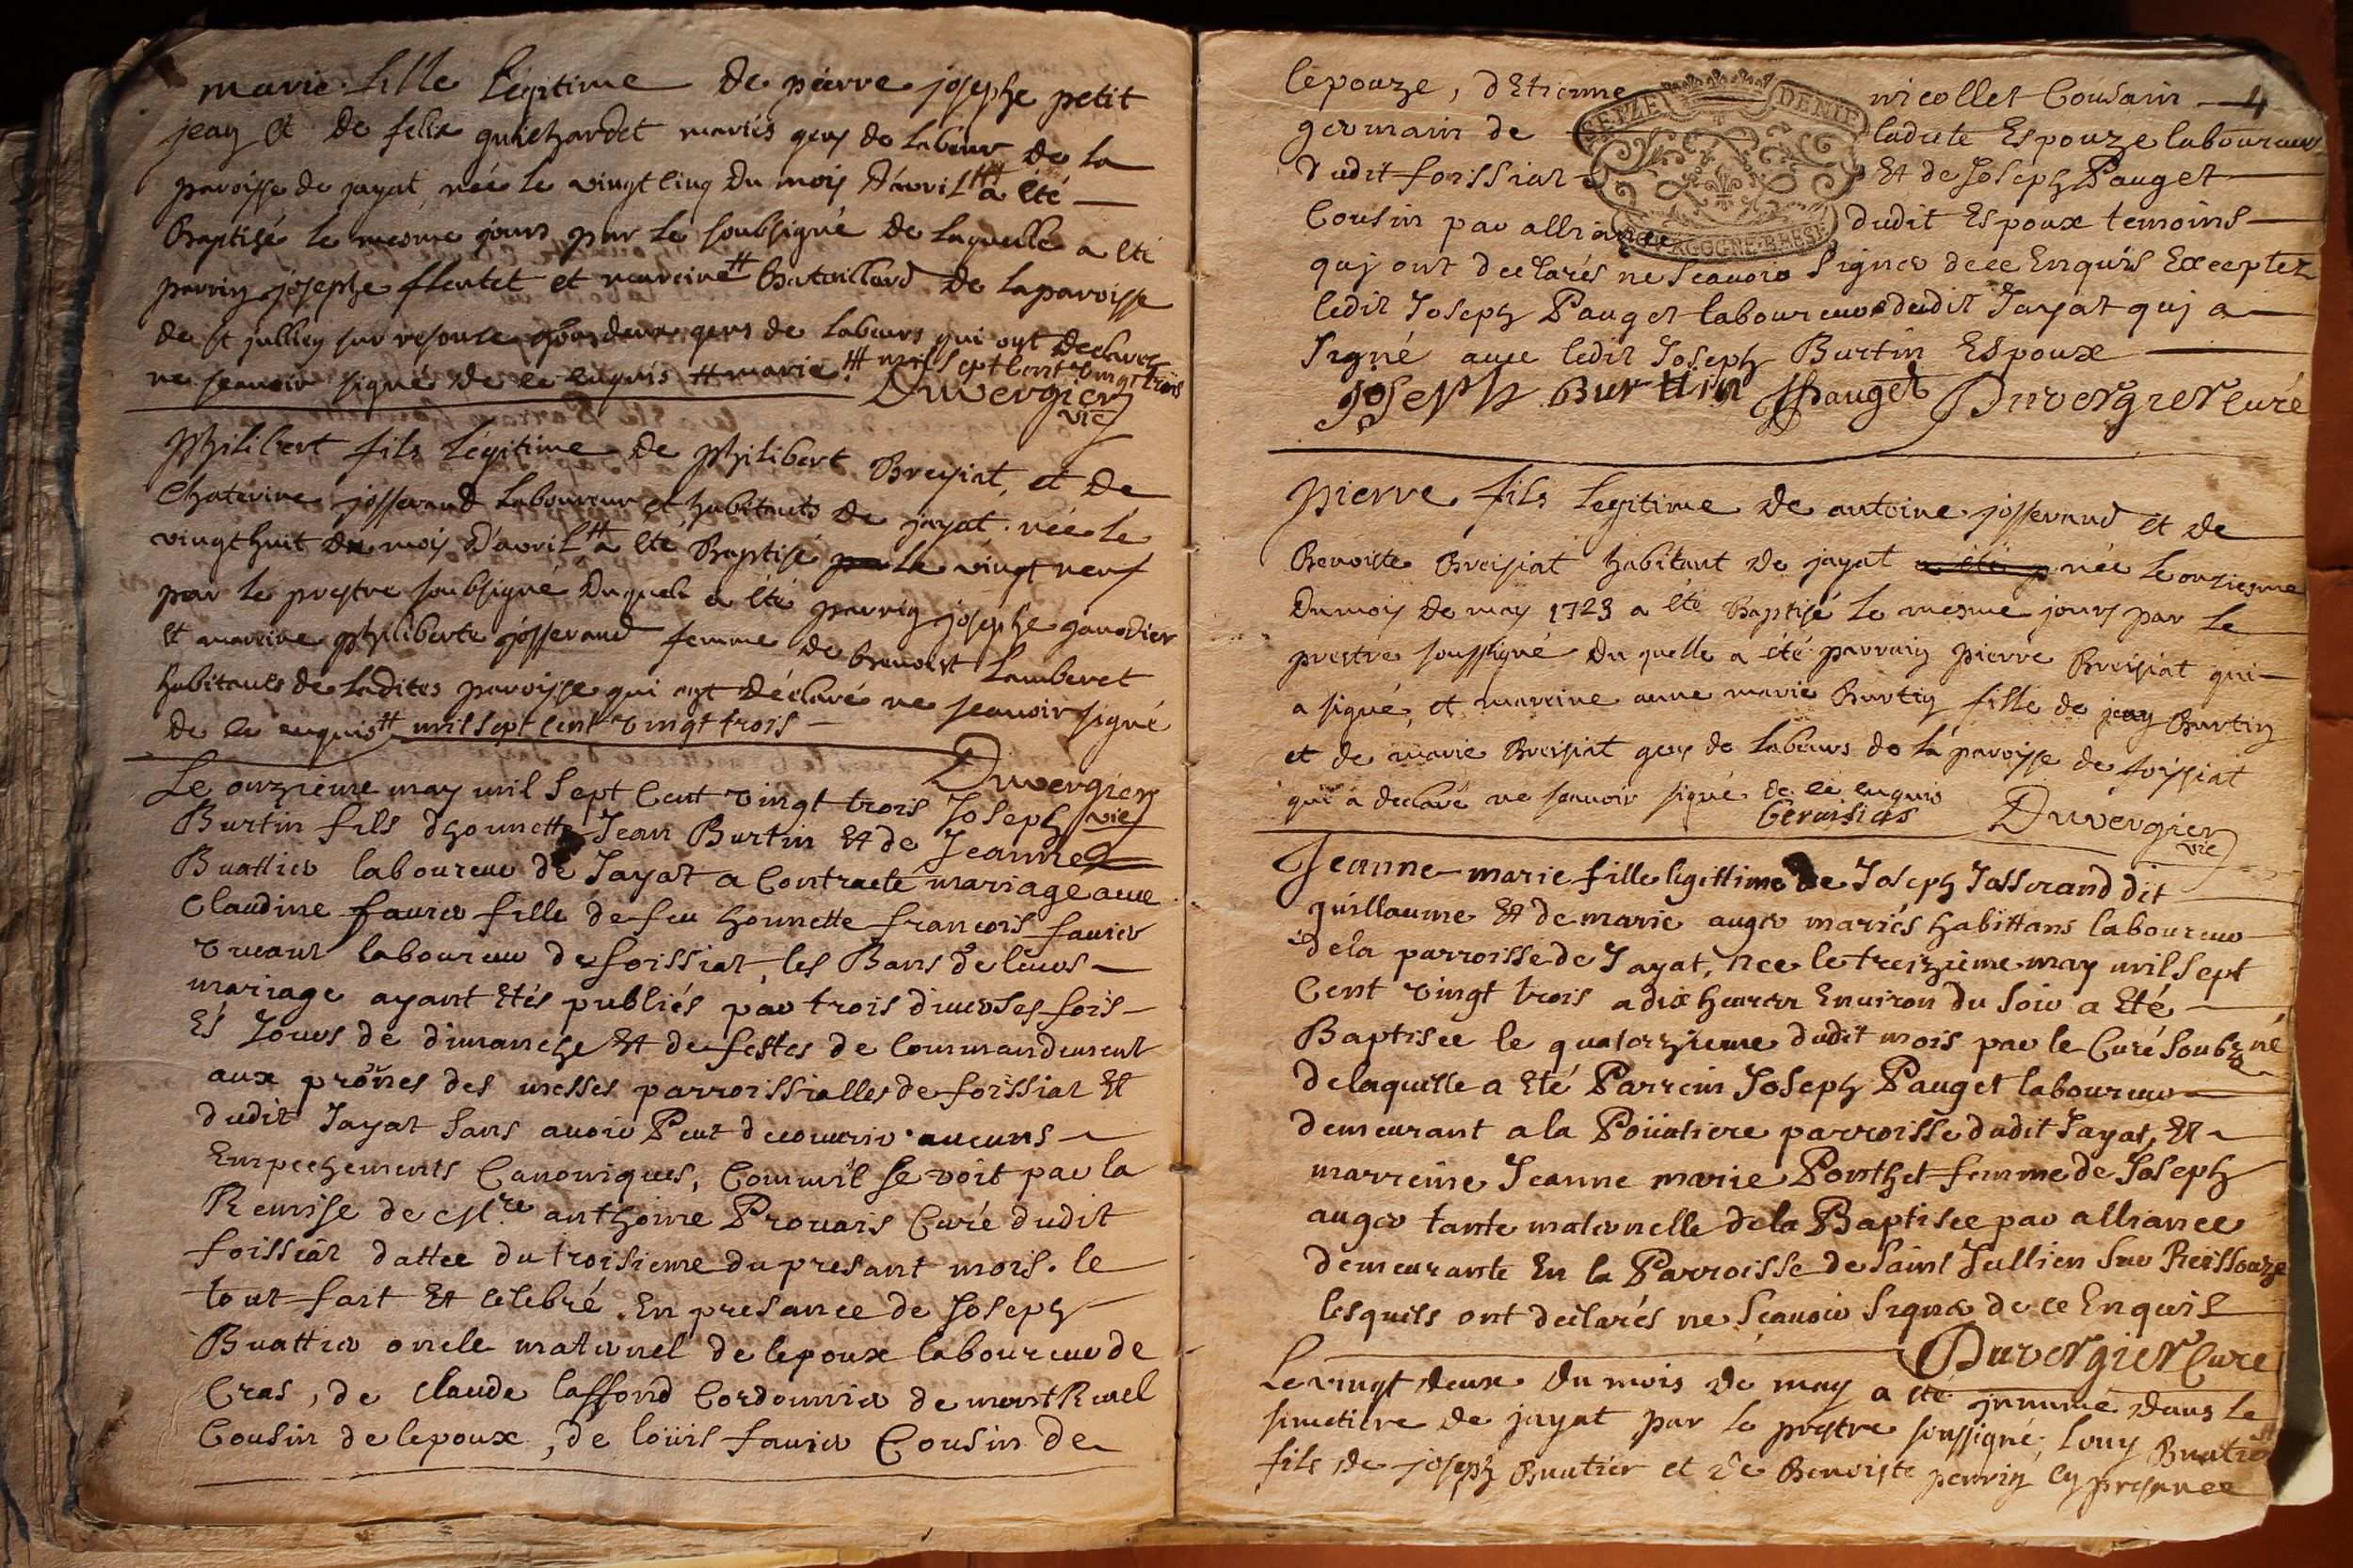 marie fille légitime de pierre josephe petit
jean et de felix guichardet mariés gens de labeur de la
paroisse de jayat, née le vingt cinq du mois d'avril # a été
Baptisé le mesme jours par le soubsigné de laquelle a été
parrin josephe et mareine # Bataillard de la paroisse
de st jullien sur resouse deux gens de labeurs qui ont declarés
ne scauoir signé de ce enquis # marie # mil sept cent vingt trois
Duvergier
vic
Philibert fils légitime de Philibert Breysiat, et de
Chaterine josserand laboureur et habitants de jayat née le
vingt huit du mois d'avril # a été Baptisé le vingt neuf
par le prestre soubsigné duquel a été parrin josephe gaudier
et mareine philiberte josserand femme de benoist Lamberet
habitants de ladites paroisse qui ont déclaré ne scauoir signé
de ce enquis # mil sept cent vingt trois
Duvergier
vic
Le onzieme may mil sept cent vingt trois Joseph
Burtin fils dhonnette Jean Burtin Et de Jeanne
Buattier laboureur de Jayat a Contracté mariage auec
Claudine fauier fille de feu honnette francois fauier
viuant laboureur de foissiat, les Bans de leurs
mariage ayant Etés publiés par trois diuerses fois
Es Jours de dimanche Et de festes de Commandement
aux prônes des messes parroissialles de foissiat Et
dudit Jayat sans auoir Peut decouurir aucuns
Empechements Canoniques, Comm'il se voit par la
Remise de Mre anthoine Prouais Curé dudit
foissiat dattee du troisieme du presant mois. le
tout fait Et celebré En presance de Joseph
Buattier oncle maternel de lepoux laboureur de
Cras, de Claude laffond Cordonnier de montReuel
Cousin de lepoux, de loüis fauier Cousin de
lepouze, dEtienne nicollet Cousain 4
germain de ladite Espouze laboureur
dudit foissiat Et de Joseph Pauget
Cousin par alliance dudit Espoux temoins
quj ont declarés ne scauoir signer de ce Enquis Exceptez
ledit Joseph Pauget laboureur dudit Jayat quj a
signé auec ledit Joseph Burtin Espoux
joseph Burtin JPauget Duvergier curé
pierre fils legitime de antoine josserand et de
Benoiste Breisiat habitant de jayat a été née le onziesme
du mois de may 1723 a été Baptisé le mesme jours par le
prestre soussigné duquelle a été parrain pierre Breisiat qui
a signé, et marreine anne marie Burtin fille de jean Burtin
et de marie Breisiat gens de labeurs de la paroisse de foissiat
qui a declaré ne scauoir signé de ce enquis
Duvergier
vic
Jeanne-marie fille legittime de Joseph Josserand dit
guillaume Et de marie auger mariés habittans laboureur
de la parroisse de Jayat, née le treizieme may mil sept
Cent vingt trois a dix heures Enuiron du soir a Eté
Baptisée le quatorzieme dudit mois par le Curé soubzné
de laquelle a Eté Parrein Joseph Pauget laboureur
demeurant a la Poüatiere parroisse dudit Jayat, Et
marreine Jeanne marie Ponthet femme de Joseph
auger tante maternelle de la Baptisée par alliance
demeurante En la Parroisse de saint Jullien sur Reissouze
lesquels ont declarés ne scauoir signer de ce Enquis
Duvergier Curé
Le vingt deux du mois de may a été jnnumé dans le
simetiere de jayat par le prestre soussigné, louy Buatier #
fils de joseph Buatier et de Benoiste perrin en presance